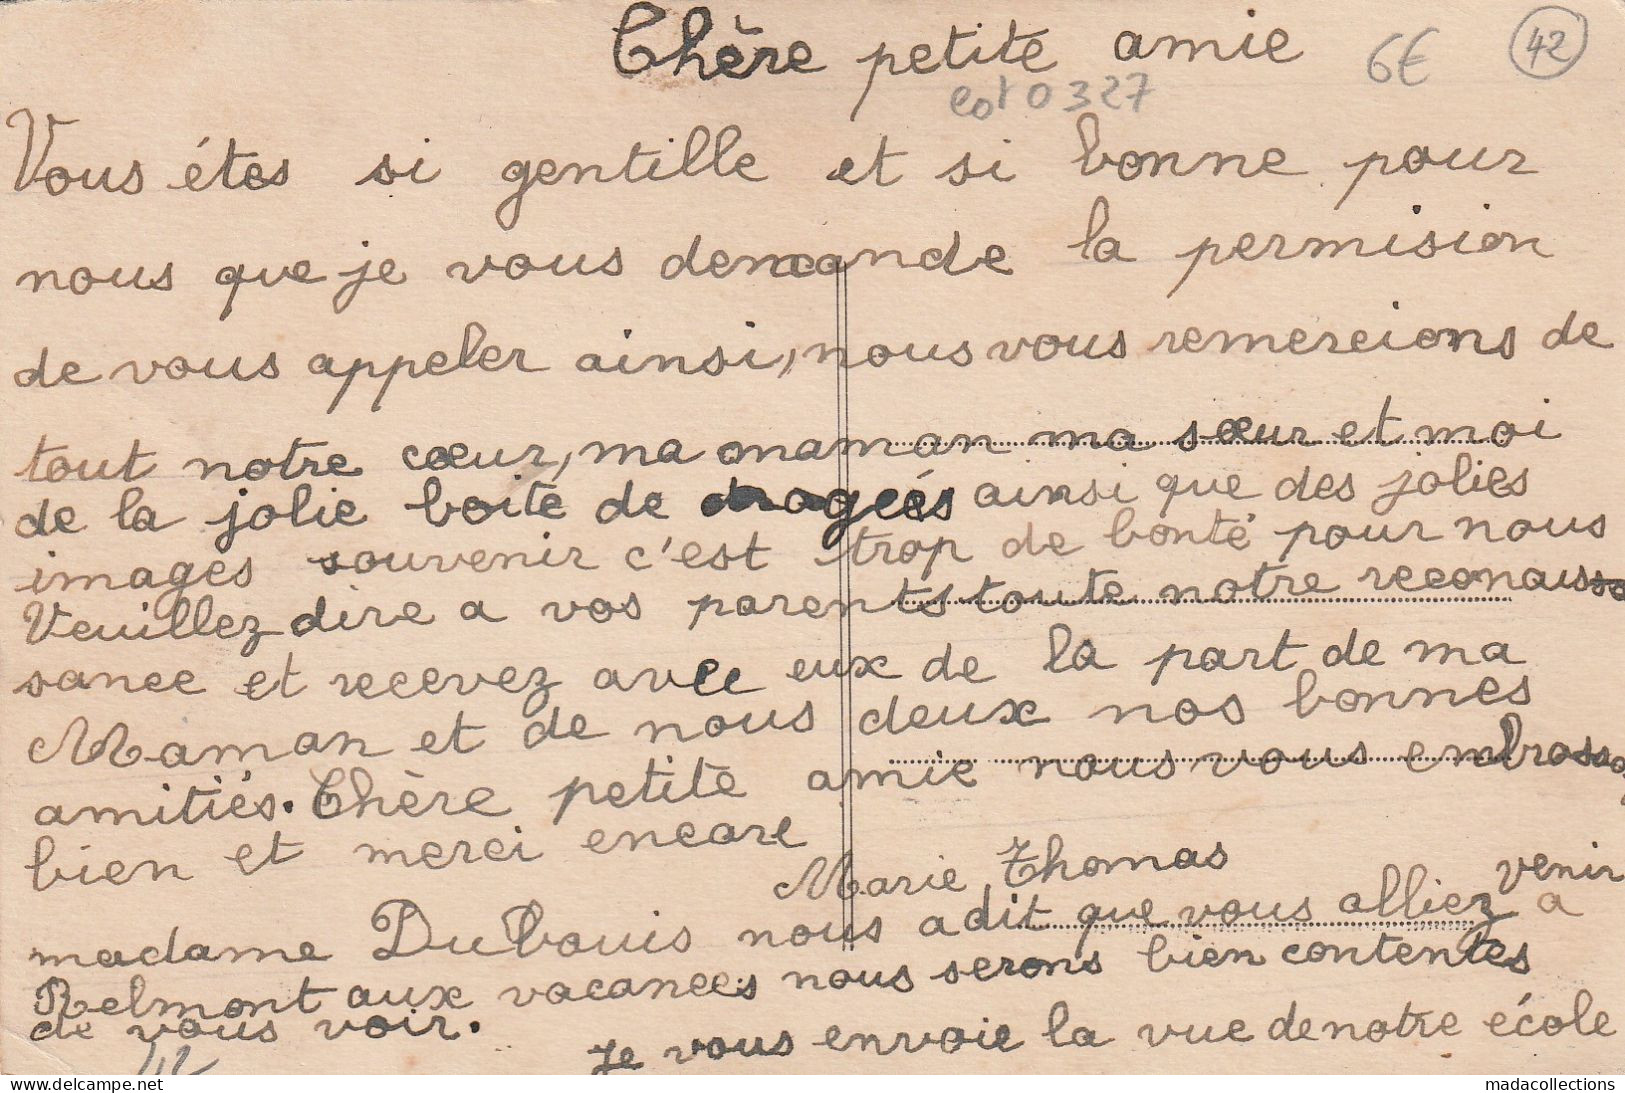 Chère petite amie 6€ 42
lot 0327
Vous étes si gentille et si bonne pour
nous que je vous demande la permision
de vous appeler ainsi, nous vous remercions de
tout notre cœur, ma maman ma sœur et moi
de la jolie boite de drageés ainsi que des jolies
images souvenir c'est trop de bonté pour nous
Veuillez dire a vos parents toute notre reconaiss
sance et recevez avec eux de la part de ma
Maman et de nous deux nos bonnes
amitiés. Chère petite amie nous vous embrasso
bien et merci encore
Marie Thomas
madame Dubouis nous a dit que vous alliez venir a
Belmont aux vacances nous serons bien contentes
de vous voir.
Je vous envoie la vue de notre école
42
www.delcampe.net madacollections